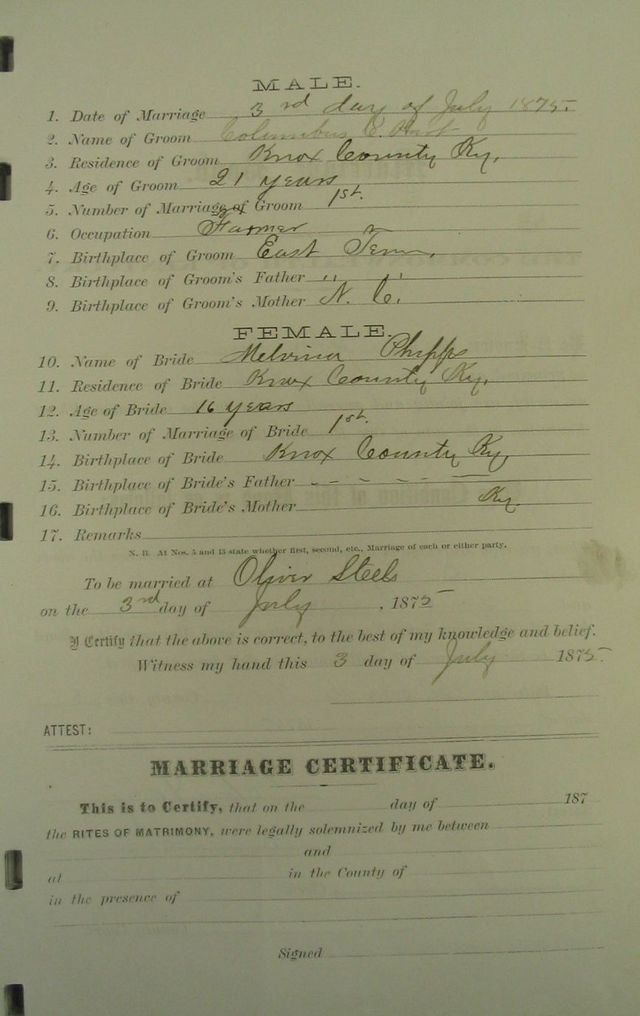 MALE.
1. Date of Marriage 3rd day of July 1875.
2. Name of Groom Columbus C.
3. Residence of Groom Knox County Ky.
4. Age of Groom 21 years
5. Number of Marriage of Groom 1st.
6. Occupation Farmer
7. Birthplace of Groom East Tenn.
8. Birthplace of Groom's Father " "
9. Birthplace of Groom's Mother N. C.
FEMALE.
10. Name of Bride Melvina Phipps
11. Residence of Bride Knox County Ky.
12. Age of Bride 16 years
13. Number of Marriage of Bride 1st.
14. Birthplace of Bride Knox County Ky
15. Birthplace of Bride's Father - - - -
16. Birthplace of Bride's Mother Ky
17. Remarks
N. B. At Nos. 5 and 13 state whether first, second, etc., Marriage of each or either party.
To be married at Oliver Steels
on the 3rd day of July, 1875
I Certify that the above is correct, to the best of my knowledge and belief.
Witness my hand this 3 day of July 1875.
ATTEST:
MARRIAGE CERTIFICATE.
This is to Certify, that on the day of 187
the RITES OF MATRIMONY, were legally solemnized by me between
and
at in the County of
in the presence of
Signed